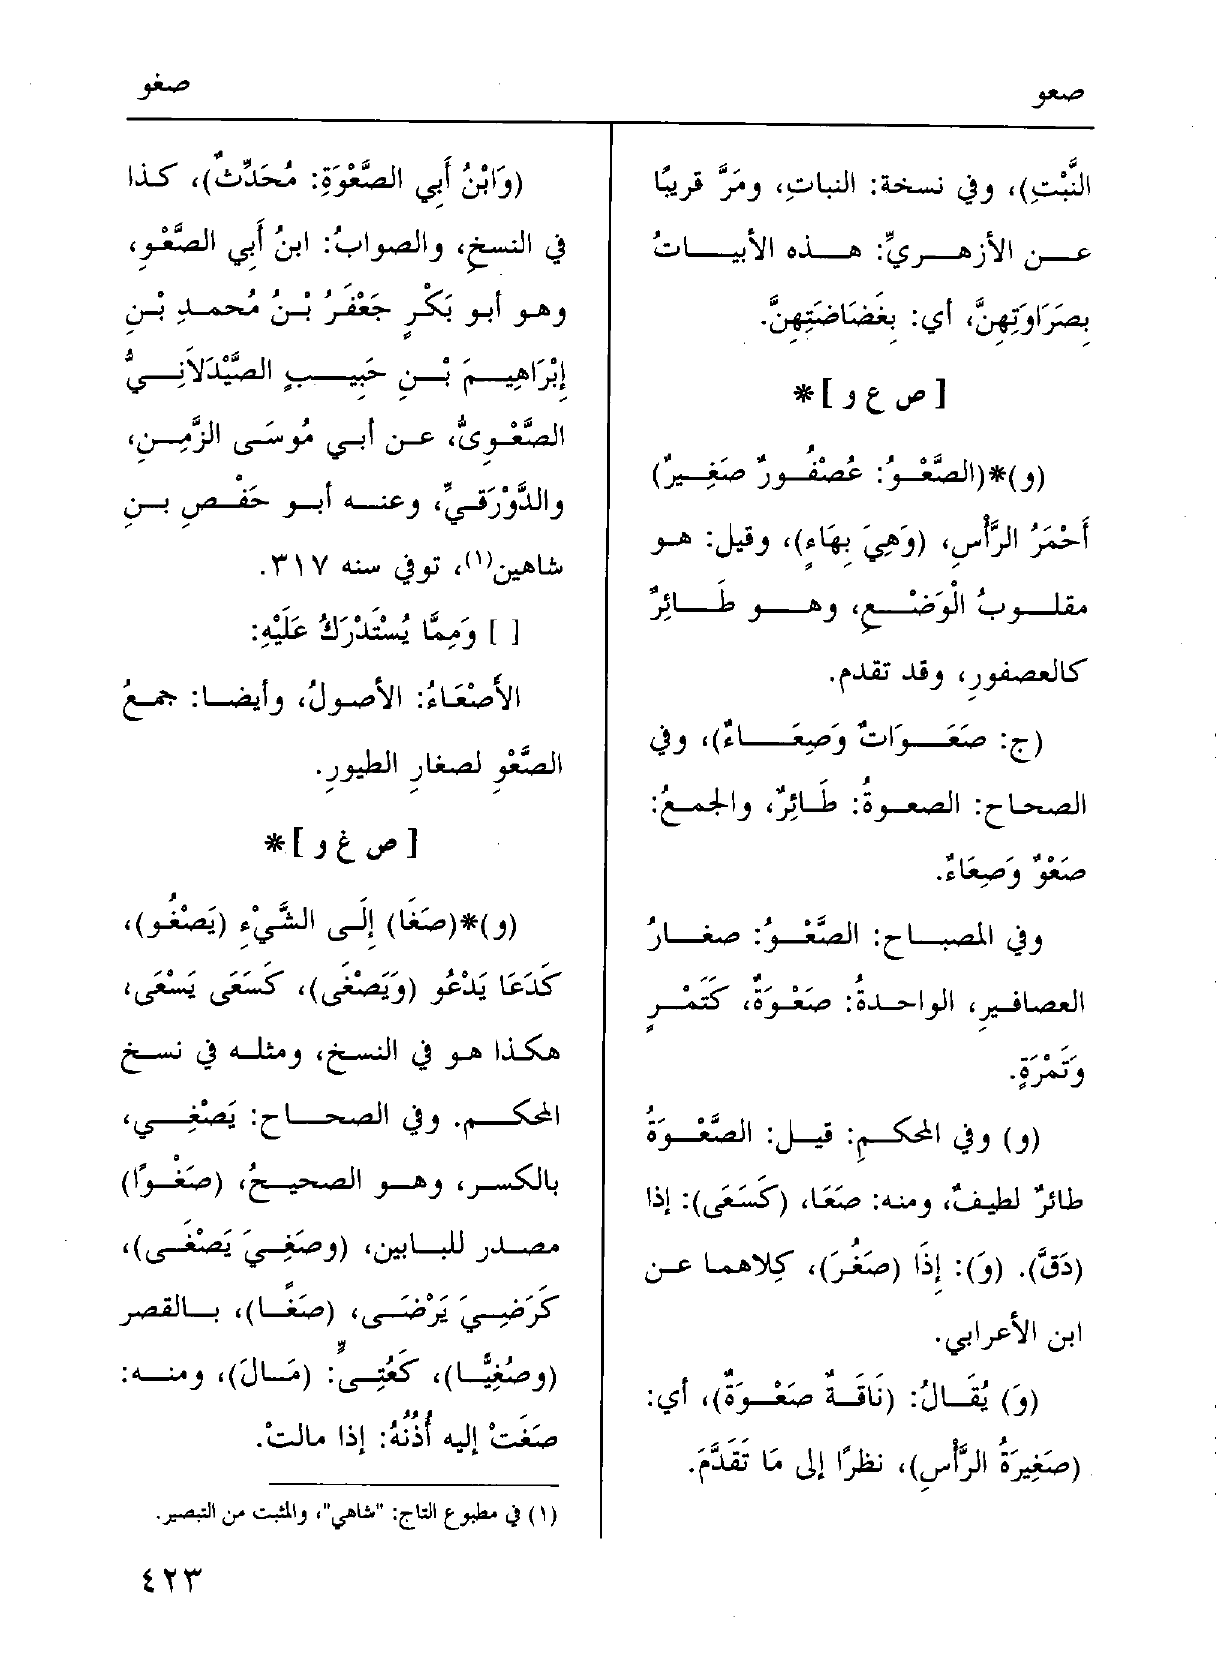 صعو
صغو
النَّبْتِ)، وفي نسخة: النباتِ، ومَرَّ قريبًا
عن الأزهريِّ: هذه الأبياتُ
بِصَرَاوَتِهِنَّ، أي: بِغَضَاضَتِهِنَّ.
[ ص ع و ] *
(و)*(الصَّعْوُ: عُصْفُورٌ صَغِيرٌ)
أَحْمَرُ الرَّأْسِ، (وَهِيَ بِهَاءٍ)، وقيل: هو
مقلوبُ الْوَضْعِ، وهو طَائِرٌ
كالعصفورِ، وقد تقدم.
(ج: صَعَوَاتٌ وَصِعَاءٌ)، وفي
الصحاح: الصعوةُ: طَائِرٌ، والجمعُ:
صَعْوٌ وَصِعَاءٌ.
وفي المصباح: الصَّعْوُ: صغارُ
العصافيرِ، الواحدةُ: صَعْوَةٌ، كَتَمْرٍ
وَتَمْرَةٍ.
(و) وفي المحكمِ: قيل: الصَّعْوَةُ
طائرٌ لطيفٌ، ومنه: صَعَا، (كَسَعَى): إذا
(دَقَّ). (وَ): إِذَا (صَغُرَ)، كِلاهما عن
ابن الأعرابي.
(وَ) يُقَالُ: (نَاقَةٌ صَعْوَةٌ)، أي:
(صَغِيرَةُ الرَّأْسِ)، نظرًا إلى مَا تَقَدَّمَ.
(وَابْنُ أَبِي الصَّعْوَةِ: مُحَدِّثٌ)، كذا
في النسخِ، والصوابُ: ابنُ أَبِي الصَّعْوِ،
وهو أبو بَكْرٍ جَعْفَرُ بْنُ مُحمدِ بْنِ
إِبْرَاهِيمَ بْنِ حَبِيبٍ الصَّيْدَلاَنِيُّ
الصَّعْوِىُّ، عن أبي مُوسَى الزَّمِنِ،
والدَّوْرَقِيِّ، وعنه أبو حَفْصِ بنِ
شاهين(١)، توفي سنه ٣١٧.
[ ] وَمِمَّا يُسْتَدْرَكُ عَلَيْهِ:
الأَصْعَاءُ: الأصولُ، وأيضا: جمعُ
الصَّعْوِ لصغارِ الطيورِ.
[ ص غ و ] *
(و)*(صَغَا) إِلَى الشَّيْءِ (يَصْغُو)،
كَدَعَا يَدْعُو (وَيَصْغَى)، كَسَعَى يَسْعَى،
هكذا هو في النسخ، ومثله في نسخ
المحكم. وفي الصحاح: يَصْغِي،
بالكسر، وهو الصحيحُ، (صَغْوًا)
مصدر للبابين، (وصَغِيَ يَصْغَى)،
كَرَضِيَ يَرْضَى، (صَغًا)، بالقصر
(وصُغِيًّا)، كَعُتِىٍّ: (مَالَ)، ومنه:
صَغَتْ إليه أُذُنُهُ: إذا مالتْ.
(١) في مطبوع التاج: "شاهي"، والمثبت من التبصير.
٤٢٣